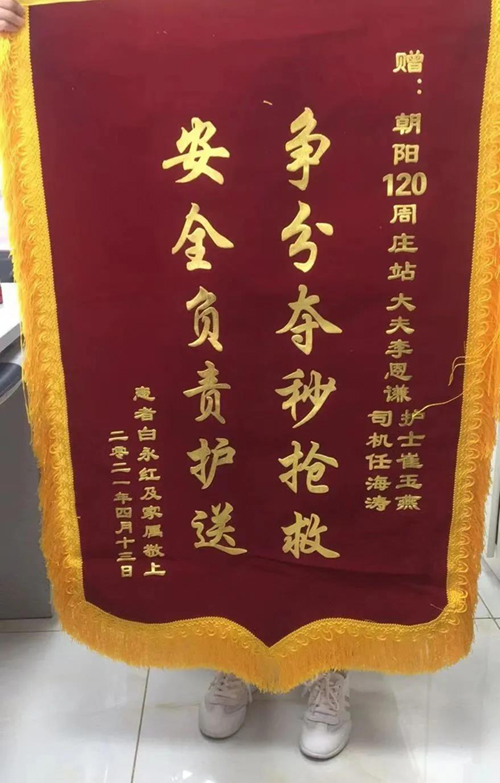 赠：朝阳120周庄站 大夫李恩谦
护士崔玉燕
司机任海涛
争分夺秒抢救
安全负责护送
患者白永红及家属敬上
二零二一年四月十三日